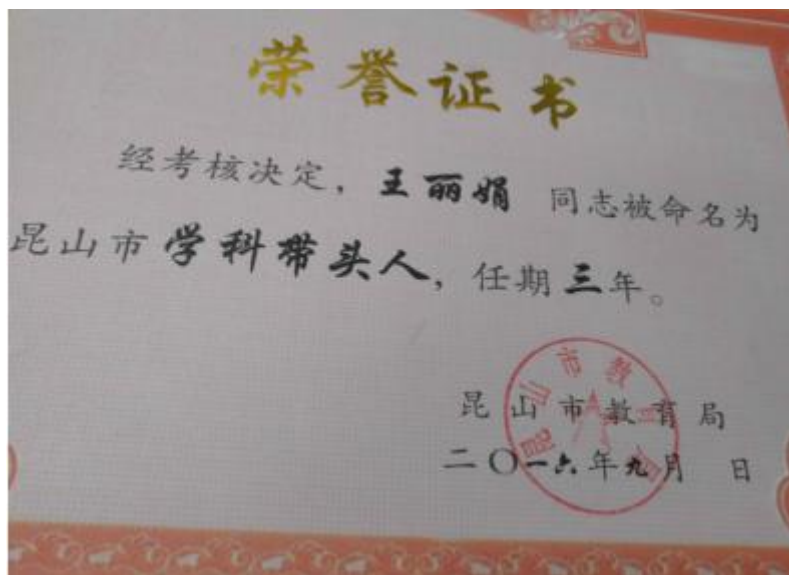 荣誉证书
经考核决定，王丽娟 同志被命名为
昆山市学科带头人，任期三年。
昆山市教育局
昆山市教育局
二〇一六年九月 日